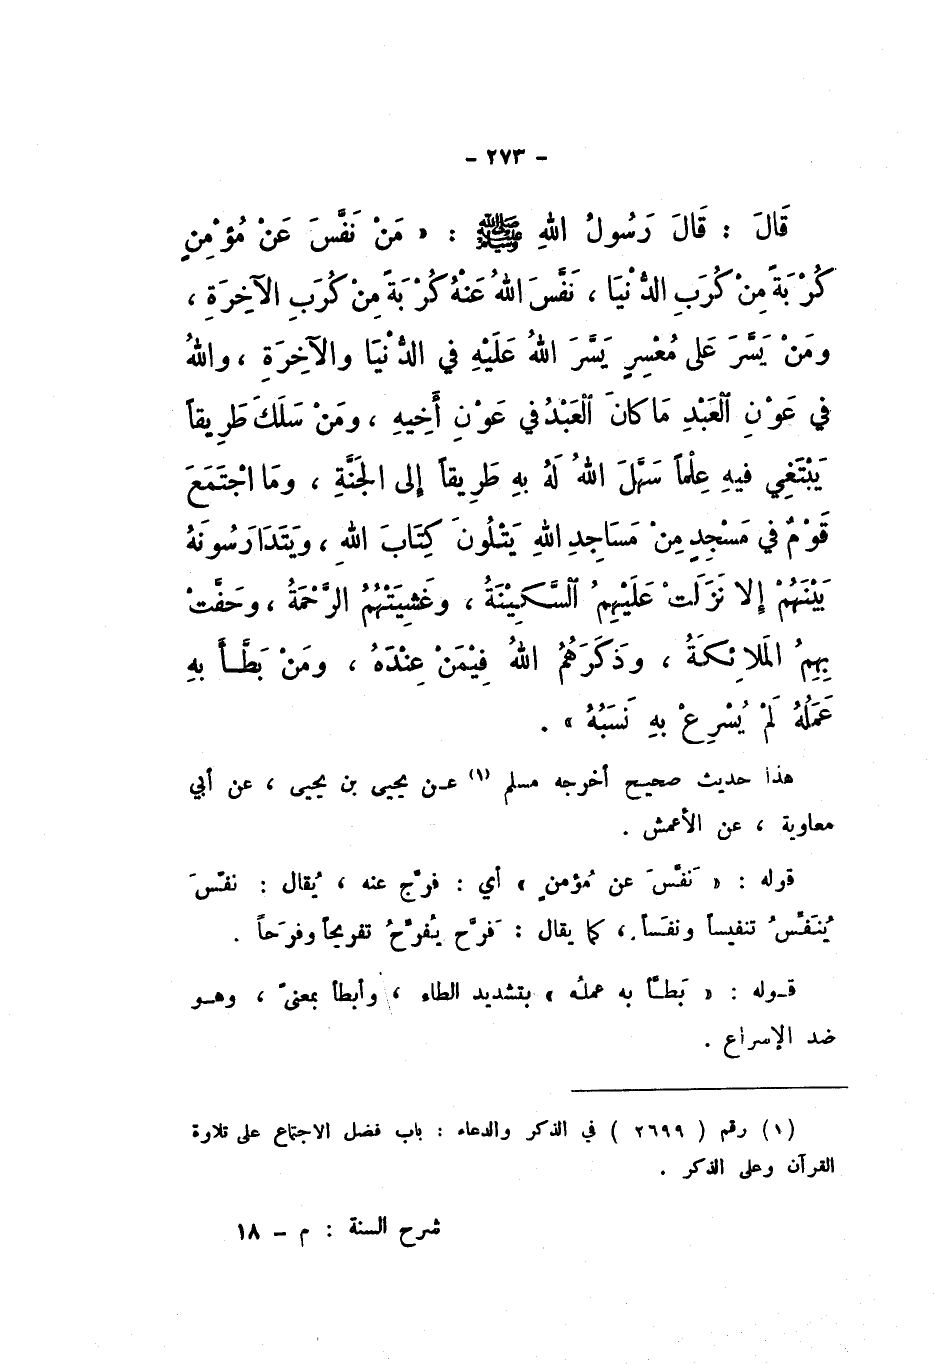 - ٢٧٣ -
قَالَ : قَالَ رَسُولُ اللهِ ﷺ : « مَنْ نَفَّسَ عَنْ مُؤْمِنٍ
كُرْبَةً مِنْ كُرَبِ الدُّنْيَا ، نَفَّسَ اللهُ عَنْهُ كُرْبَةً مِنْ كُرَبِ الآخِرَةِ ،
ومَنْ يَسَّرَ عَلى مُعْسِرٍ يَسَّرَ اللهُ عَلَيْهِ في الدُّنْيَا والآخِرَةِ ، واللهُ
في عَوْنِ ٱلْعَبْدِ مَا كَانَ ٱلْعَبْدُ في عَوْنِ أَخِيهِ ، ومَنْ سَلَكَ طَرِيقاً
يَبْتَغِي فيهِ عِلْماً سَهَّلَ اللهُ لَهُ بِهِ طَرِيقاً إلى الجَنَّةِ ، ومَا اجْتَمَعَ
قَوْمٌ في مَسْجِدٍ مِنْ مَسَاجِدِ اللهِ يَتْلُونَ كِتَابَ اللهِ ، ويَتَدَارَسُونَهُ
بَيْنَهُمْ إلا نَزَلَتْ عَلَيْهِمُ ٱلسَّكِينَةُ ، وغَشِيَتْهُمُ الرَّحْمَةُ ، وحَفَّتْ
بِهِمُ المَلائِكَةُ ، وذَكَرَهُمُ اللهُ فِيْمَنْ عِنْدَهُ ، ومَنْ بَطَّـأَ بِهِ
عَمَلُهُ لَمْ يُسْرِعْ بِهِ نَسَبُهُ » .
هذا حديث صحيح أخرجه مسلم (١) عـن يحيى بن يحيى ، عن أبي
معاوية ، عن الأعمش .
قوله : « نَفَّسَ عن مُؤمنٍ » أي : فرَّج عنه ، يُقال : نفّسَ
يُنَفِّسُ تنفيساً ونفَساً ، كما يقال : فَرَّح يُفرِّحُ تفريحاً وفرَحاً .
قـوله : « بَطَّـأ به عملُه » بتشديد الطاء ، وأبطأ بمعنىً ، وهـو
ضد الإسراع .
(١) رقم ( ٢٦٩٩ ) في الذكر والدعاء : باب فضل الاجتماع على تلاوة
القرآن وعلى الذكر .
شرح السنة : م - ١٨